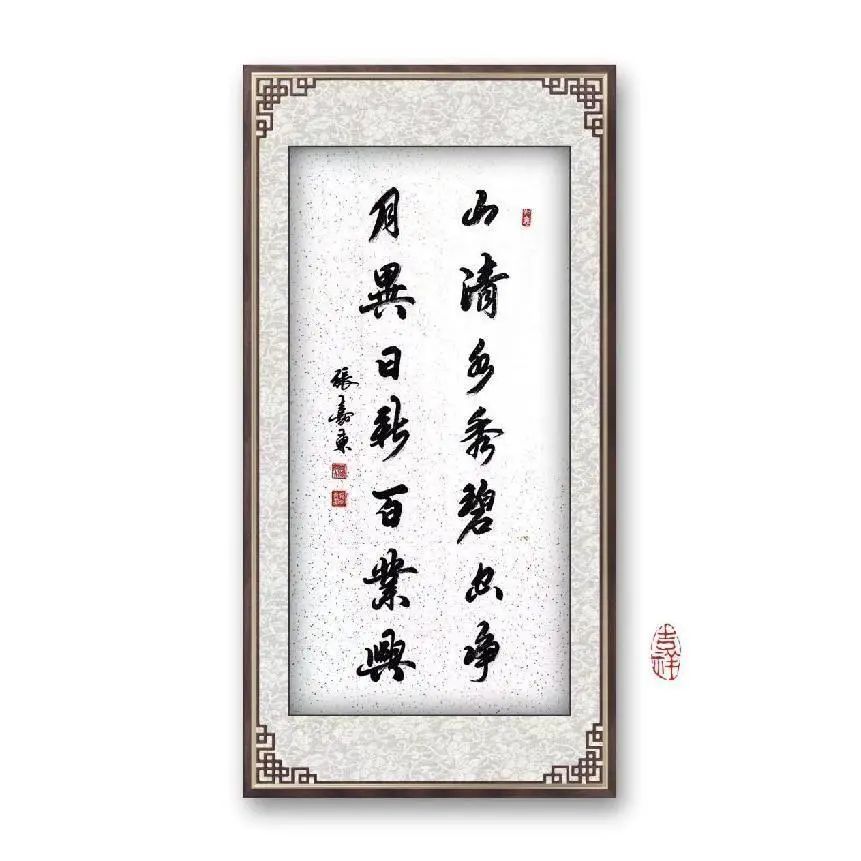 山清水秀碧空净
月異日新百業興
張嘉東
吉祥